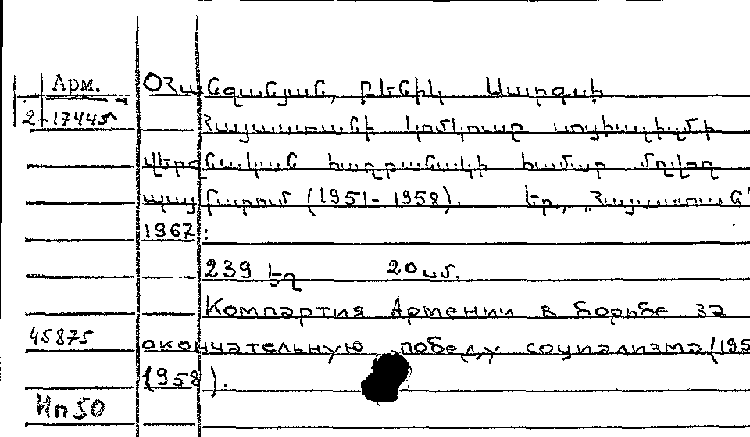 Арм.
Օհանջանյան, Բենիկ Սարգսի
2-17445
Հայաստանի կոմկուսը սոցիալիզմի
վերջնական հաղթանակի համար մղվող
պայքարում (1951-1958). Եր., "Հայաստան"
1967:
239 էջ 20 սմ.
Компартия Армении в борьбе за
45875
окончательную победу социализма (195
(1958).
Ип 50